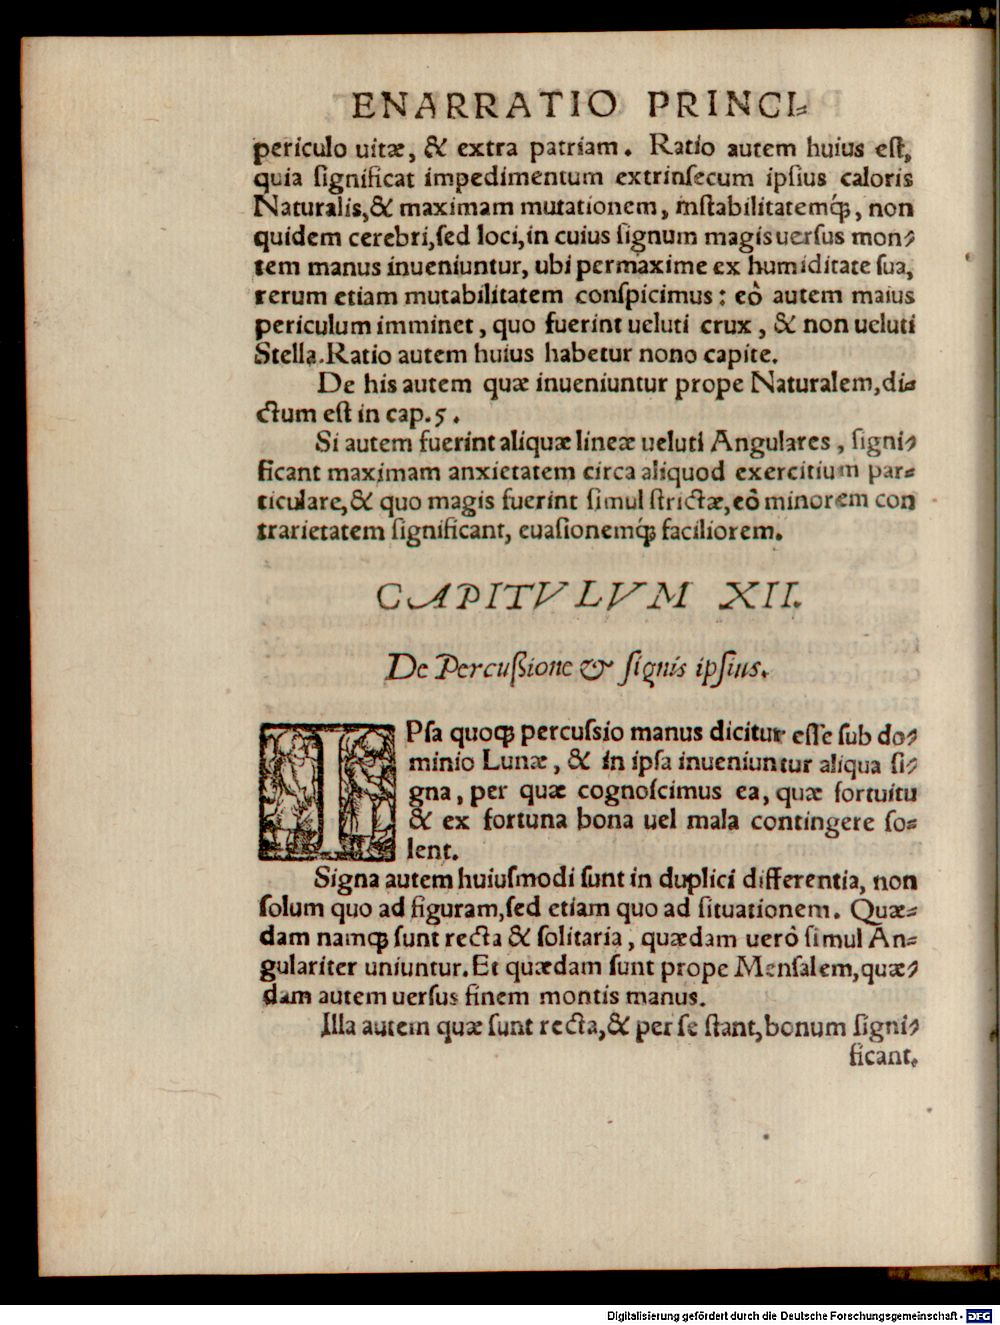 ENARRATIO PRINCI⸗
periculo uitæ, & extra patriam. Ratio autem huius eſt,
quia ſignificat impedimentum extrinſecum ipſius caloris
Naturalis,& maximam mutationem, inſtabilitatemq́;, non
quidem cerebri,ſed loci,in cuius ſignum magis uerſus mon⸗
tem manus inueniuntur, ubi permaxime ex humiditate ſua,
rerum etiam mutabilitatem conſpicimus: eò autem maius
periculum imminet, quo fuerint ueluti crux, & non ueluti
Stella. Ratio autem huius habetur nono capite.
De his autem quæ inueniuntur prope Naturalem, di⸗
ctum eſt in cap. 5.
Si autem fuerint aliquæ lineæ ueluti Angulares, ſigni⸗
ficant maximam anxietatem circa aliquod exercitium par⸗
ticulare,& quo magis fuerint ſimul ſtrictæ, eô minorem con
trarietatem ſignificant, euaſionemq́; faciliorem.
CAPITVLVM XII.
De Percuſsione & ſignis ipſius.
IPſa quoq; percuſsio manus dicitur eſſe ſub do⸗
minio Lunæ, & in ipſa inueniuntur aliqua ſi⸗
gna, per quæ cognoſcimus ea, quæ fortuitu
& ex fortuna bona uel mala contingere ſo⸗
lent.
Signa autem huiuſmodi ſunt in duplici differentia, non
ſolum quo ad figuram,ſed etiam quo ad ſituationem. Quæ⸗
dam namq; ſunt recta & ſolitaria, quædam uerò ſimul An⸗
gulariter uniuntur. Et quædam ſunt prope Menſalem, quæ⸗
dam autem uerſus finem montis manus.
Illa autem quæ ſunt recta,& per ſe ſtant, bonum ſigni⸗
ficant.
Digitalisierung gefördert durch die Deutsche Forschungsgemeinschaft - DFG